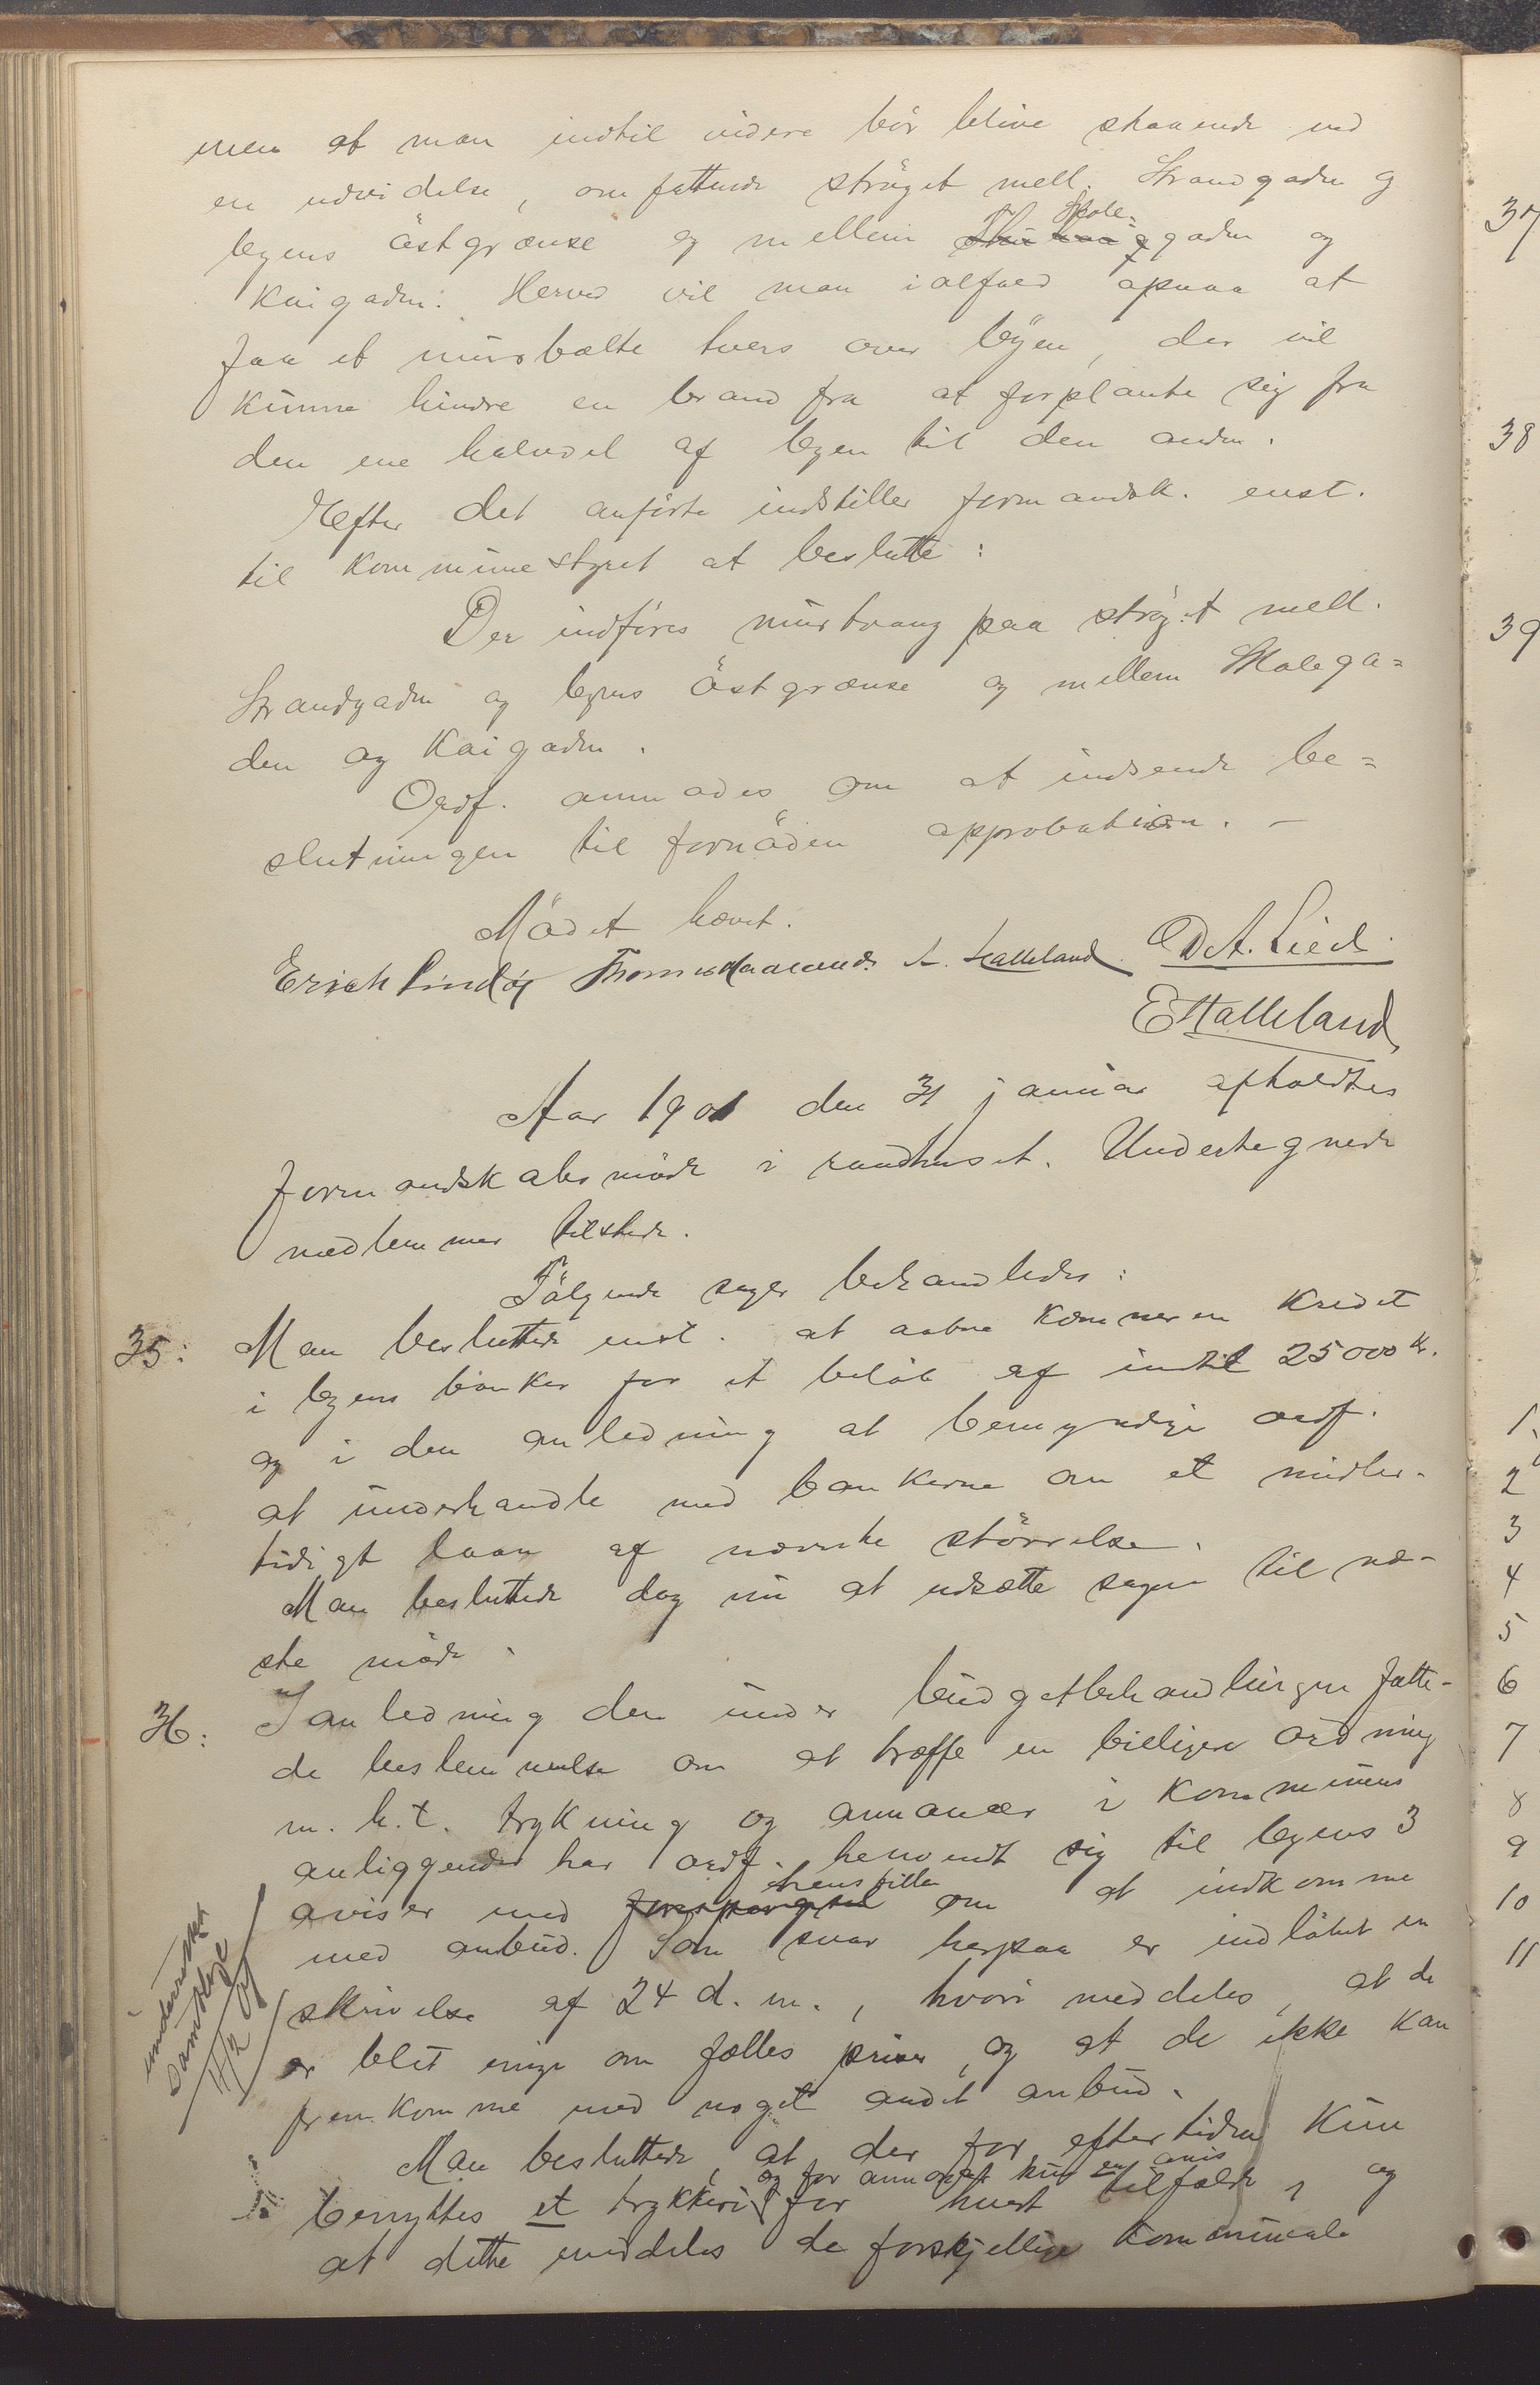 men at man indtil videre bör blive staaende ved
en udvidelse, omfattende ströget mell. Strandgaden og
byens östgrænse og mellem Skole- gaden og
Kaigaden. Herved vil man ialfald opnaa at
faa et mursbælte tvers over byen, der vil
kunne hindre en brand fra at forplante sig fra
den ene halvdel af byen til den anden.
Efter det anförte indstiller formandsk. enst.
til kommunestyret at beslutte:
Der indföres murtvang paa ströget mell.
Strandgaden og byens östgrænse og mellem Skolega=
den og Kaigaden.
Ordf. anmodes om at indsende be=
slutningen til fornöden approbation. –
Mödet hævet.
Erich Lindöe Thom. Haaland. A. Halleland O. A. Lied.
E Halleland,
Aar 1901 den 31 januar afholdtes
formandskabsmöde i raadhuset. Undertegnede
medlemmer tilstede.
Fölgende sager behandledes:
35: Man besluttede enst. at aabne kæmneren kredit
i byens banker for et belöb af indtil 25000 kr.
og i den anledning at bemyndige ordf.
at underhandle med bankerne om et midler-
tidigt laan af nævnte störrelse.
Man besluttede dog nu at udsætte sagen til næ-
ste möde.
36: I anledning den under budgetbehandlingen fatte-
de bestemmelse om at træffe en billigere ordning
m. h. t. trykning og annoncer i kommunens
anliggender har ordf. henvendt sig til byens 3
aviser med forespörgsel henstillen om at indkomme
med anbud. Som svar herpaa er indlöbet en
skrivelse af 24 d. m., hvori meddeles, at de
er blit enige om fælles priser, og at de ikke kan
fremkomme med noget andet anbud.
underrettet
samtlige
11/2 01
Man besluttede, at der for eftertiden kun
benyttes et trykkeri og for annoncer kun en avis for hvert tilfælde, og
at dette meddeles de forskjellige kommunale
37
38
39
1.
2
3
4
5
6
7
8
9
10
11